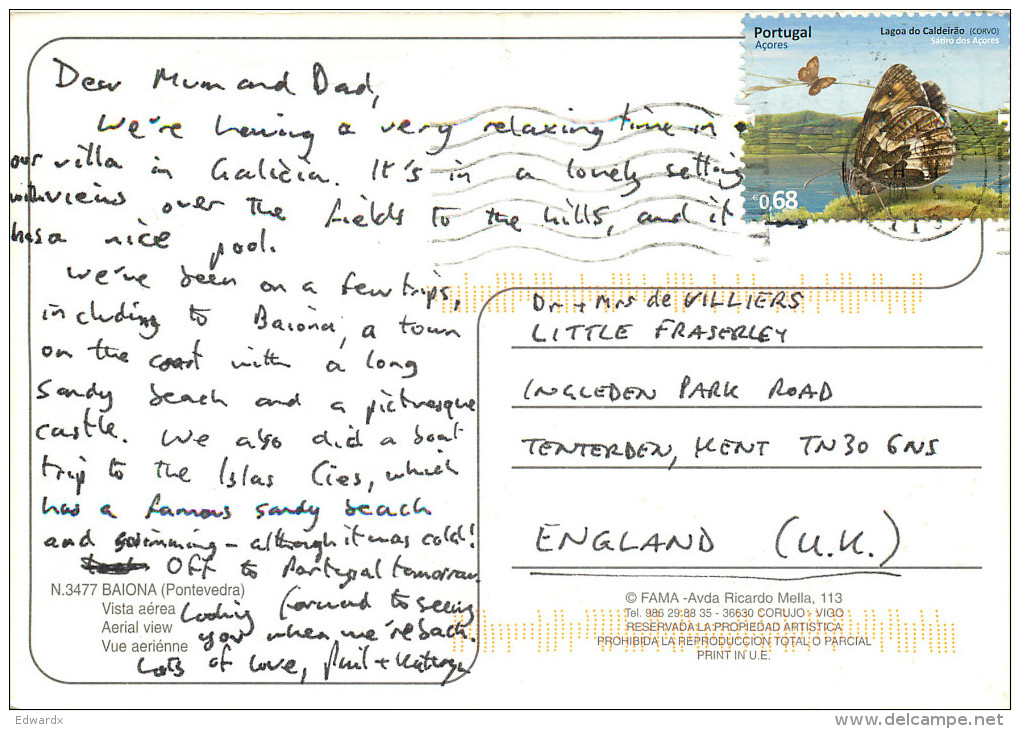 Portugal
Açores
Lagoa do Caldeirão (CORVO)
Satiro dos Açores
€0,68
Dear Mum and Dad,
We're having a very relaxing time in
our villa in Galicia. It's in a lovely setting
with views over the fields to the hills, and it
has a nice pool.
We've been on a few trips,
including to Baiona, a town
on the coast with a long
sandy beach and a picturesque
castle. We also did a boat
trip to the Islas Cies, which
has a famous sandy beach
and swimming - although it was cold!
Off to Portugal tomorrow.
Looking forward to seeing
you when we're back.
Lots of love,
Dr + Mrs de VILLIERS
LITTLE FRASERLEY
INGLEDEN PARK ROAD
TENTERDEN, KENT TN30 6NS
ENGLAND (U.K.)
N.3477 BAIONA (Pontevedra)
Vista aérea
Aerial view
Vue aeriénne
© FAMA -Avda Ricardo Mella, 113
Tel. 986 29 88 35 - 36630 CORUJO - VIGO
RESERVADA LA PROPIEDAD ARTISTICA
PROHIBIDA LA REPRODUCCION TOTAL O PARCIAL
PRINT IN U.E.
Edwardx
www.delcampe.net